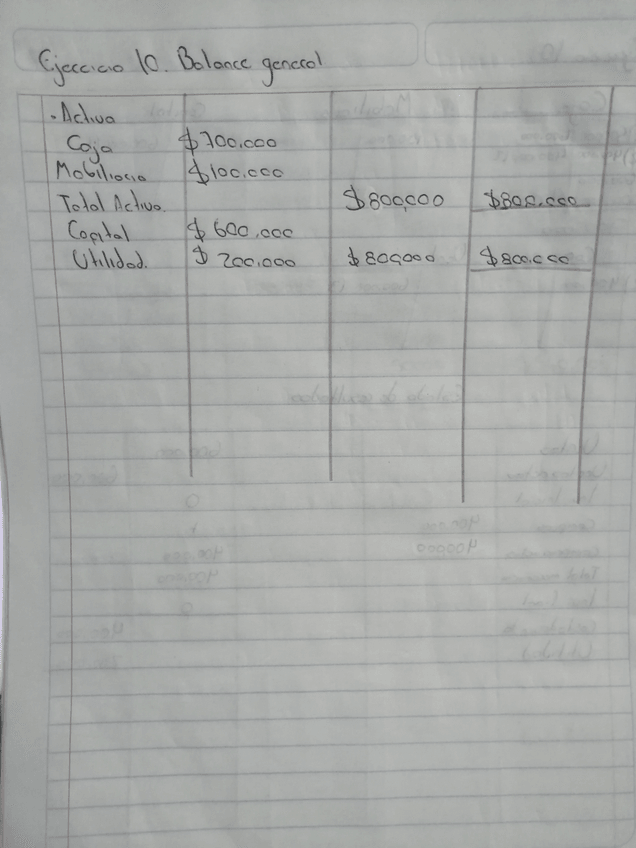 Ejercicio 10. Balance general
. Activo
Caja $700.000
Mobiliario $100.000
Total Activo. $800,000 $800.000
Capital $600.000
Utilidad. $200.000 $800,000 $800.000